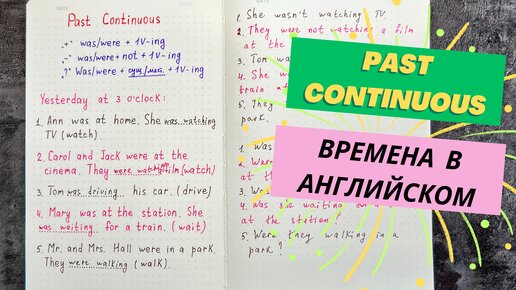 Past Continuous
"+" was/were + 1V-ing
"-" was/were + not + 1V-ing
"?" Was/were + сущ/мест + 1V-ing
Yesterday at 3 o'clock:
1. Ann was at home. She was watching
TV (watch).
2. Carol and Jack were at the
cinema. They were watching film (watch)
3. Tom was driving his car. (drive)
4. Mary was at the station. She
was waiting for a train. (wait)
5. Mr. and Mrs. Hall were in a park.
They were walking (walk).
1. She wasn't watching TV.
2. They were not watching a film
at the
3. Tom
4. She
train
5. They
park.
1. Wa
2. Were
at th
3. W
4. Was she waiting
at the station?
5. Were they walking in a
park?
PAST
CONTINUOUS
ВРЕМЕНА В
АНГЛИЙСКОМ